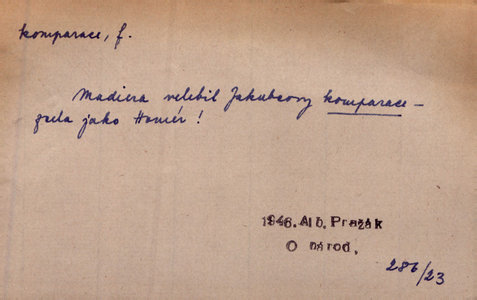 komparace, f.
Madiera velebil Jakubcovy komparace –
zcela jako Homér!
1946. Alb. Pražák
O národ,
286/23